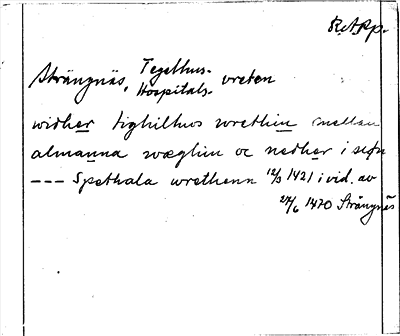 R.A.Pp.
Strängnäs, Tegelhus-
Hospitals- vreten
widher tighilhus wrethin mellan
almanna wæghin oc nedher i siøn
--- Spethala wrethenn 12/3 1421 i vid. av
24/6 1470 Strängnäs